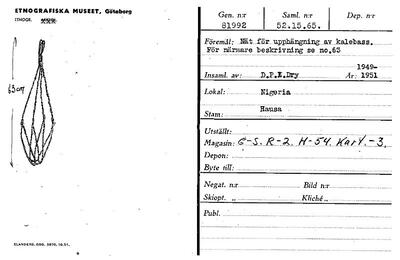 ETNOGRAFISKA MUSEET, Göteborg
ETNOGR.
63cm
ELANDERS, GBG. 5870. 10.51.
Gen. n:r Saml. n:r Dep. n:r
81992 52.15.65.
Föremål: Nät för upphängning av kalebass.
För närmare beskrivning se no.63
1949-
Insaml. av: D.P.L.Dry År: 1951
Lokal: Nigeria
Stam: Hausa
Utställt:
Magasin: G-S. R-2. H-54. Kart.-3.
Depon:
Byte till:
Negat. n:r Bild n:r
Skiopt. „ Kliché „
Publ.